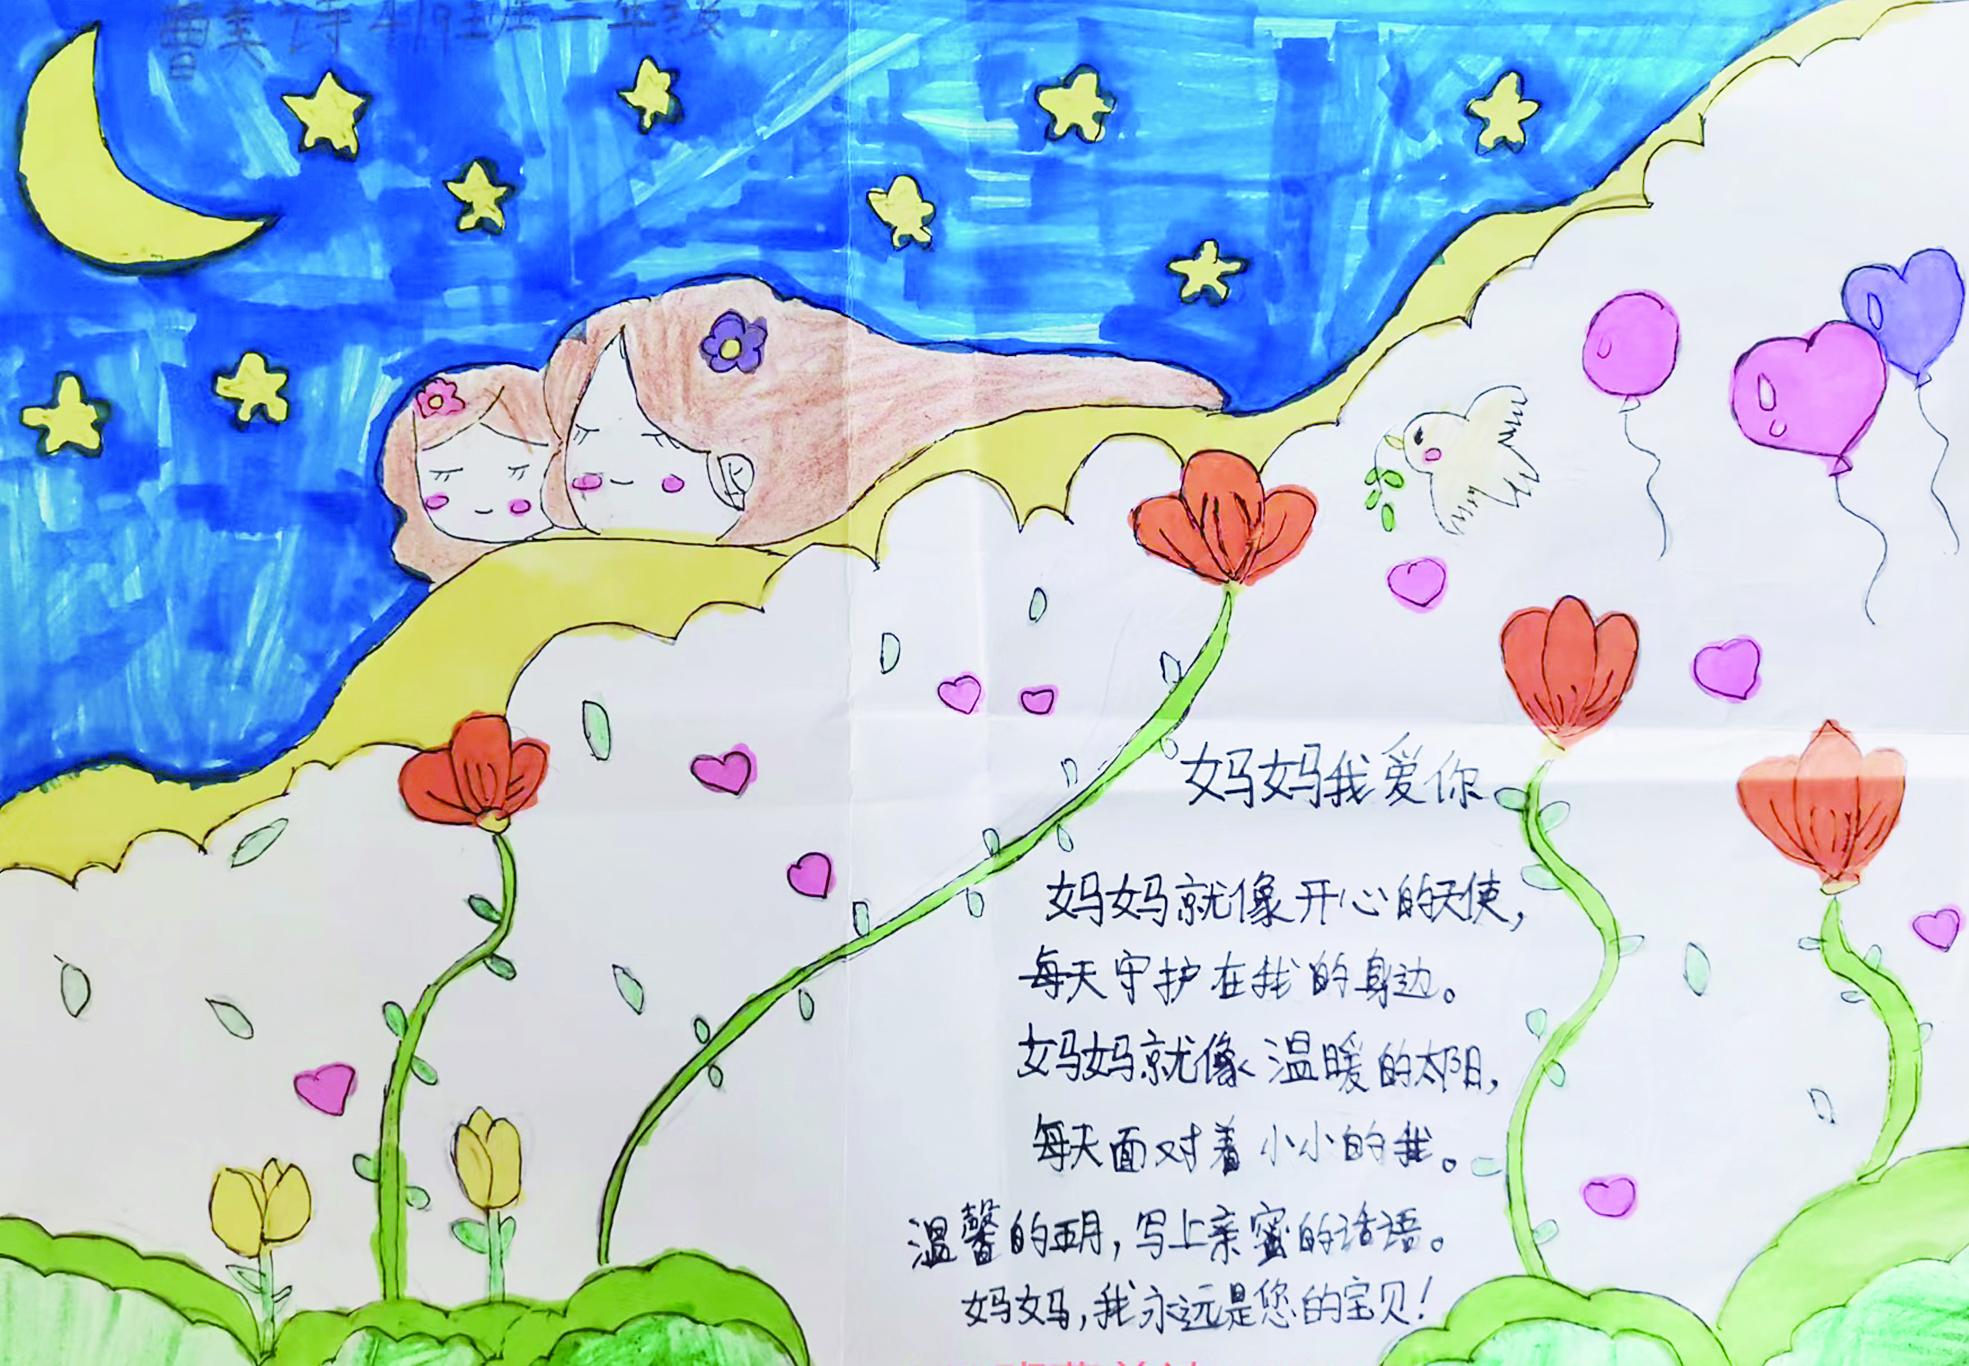 妈妈我爱你
妈妈就像开心的天使，
每天守护在我的身边。
妈妈就像温暖的太阳，
每天面对着小小的我。
温馨的五月，写上亲蜜的话语。
妈妈，我永远是您的宝贝！